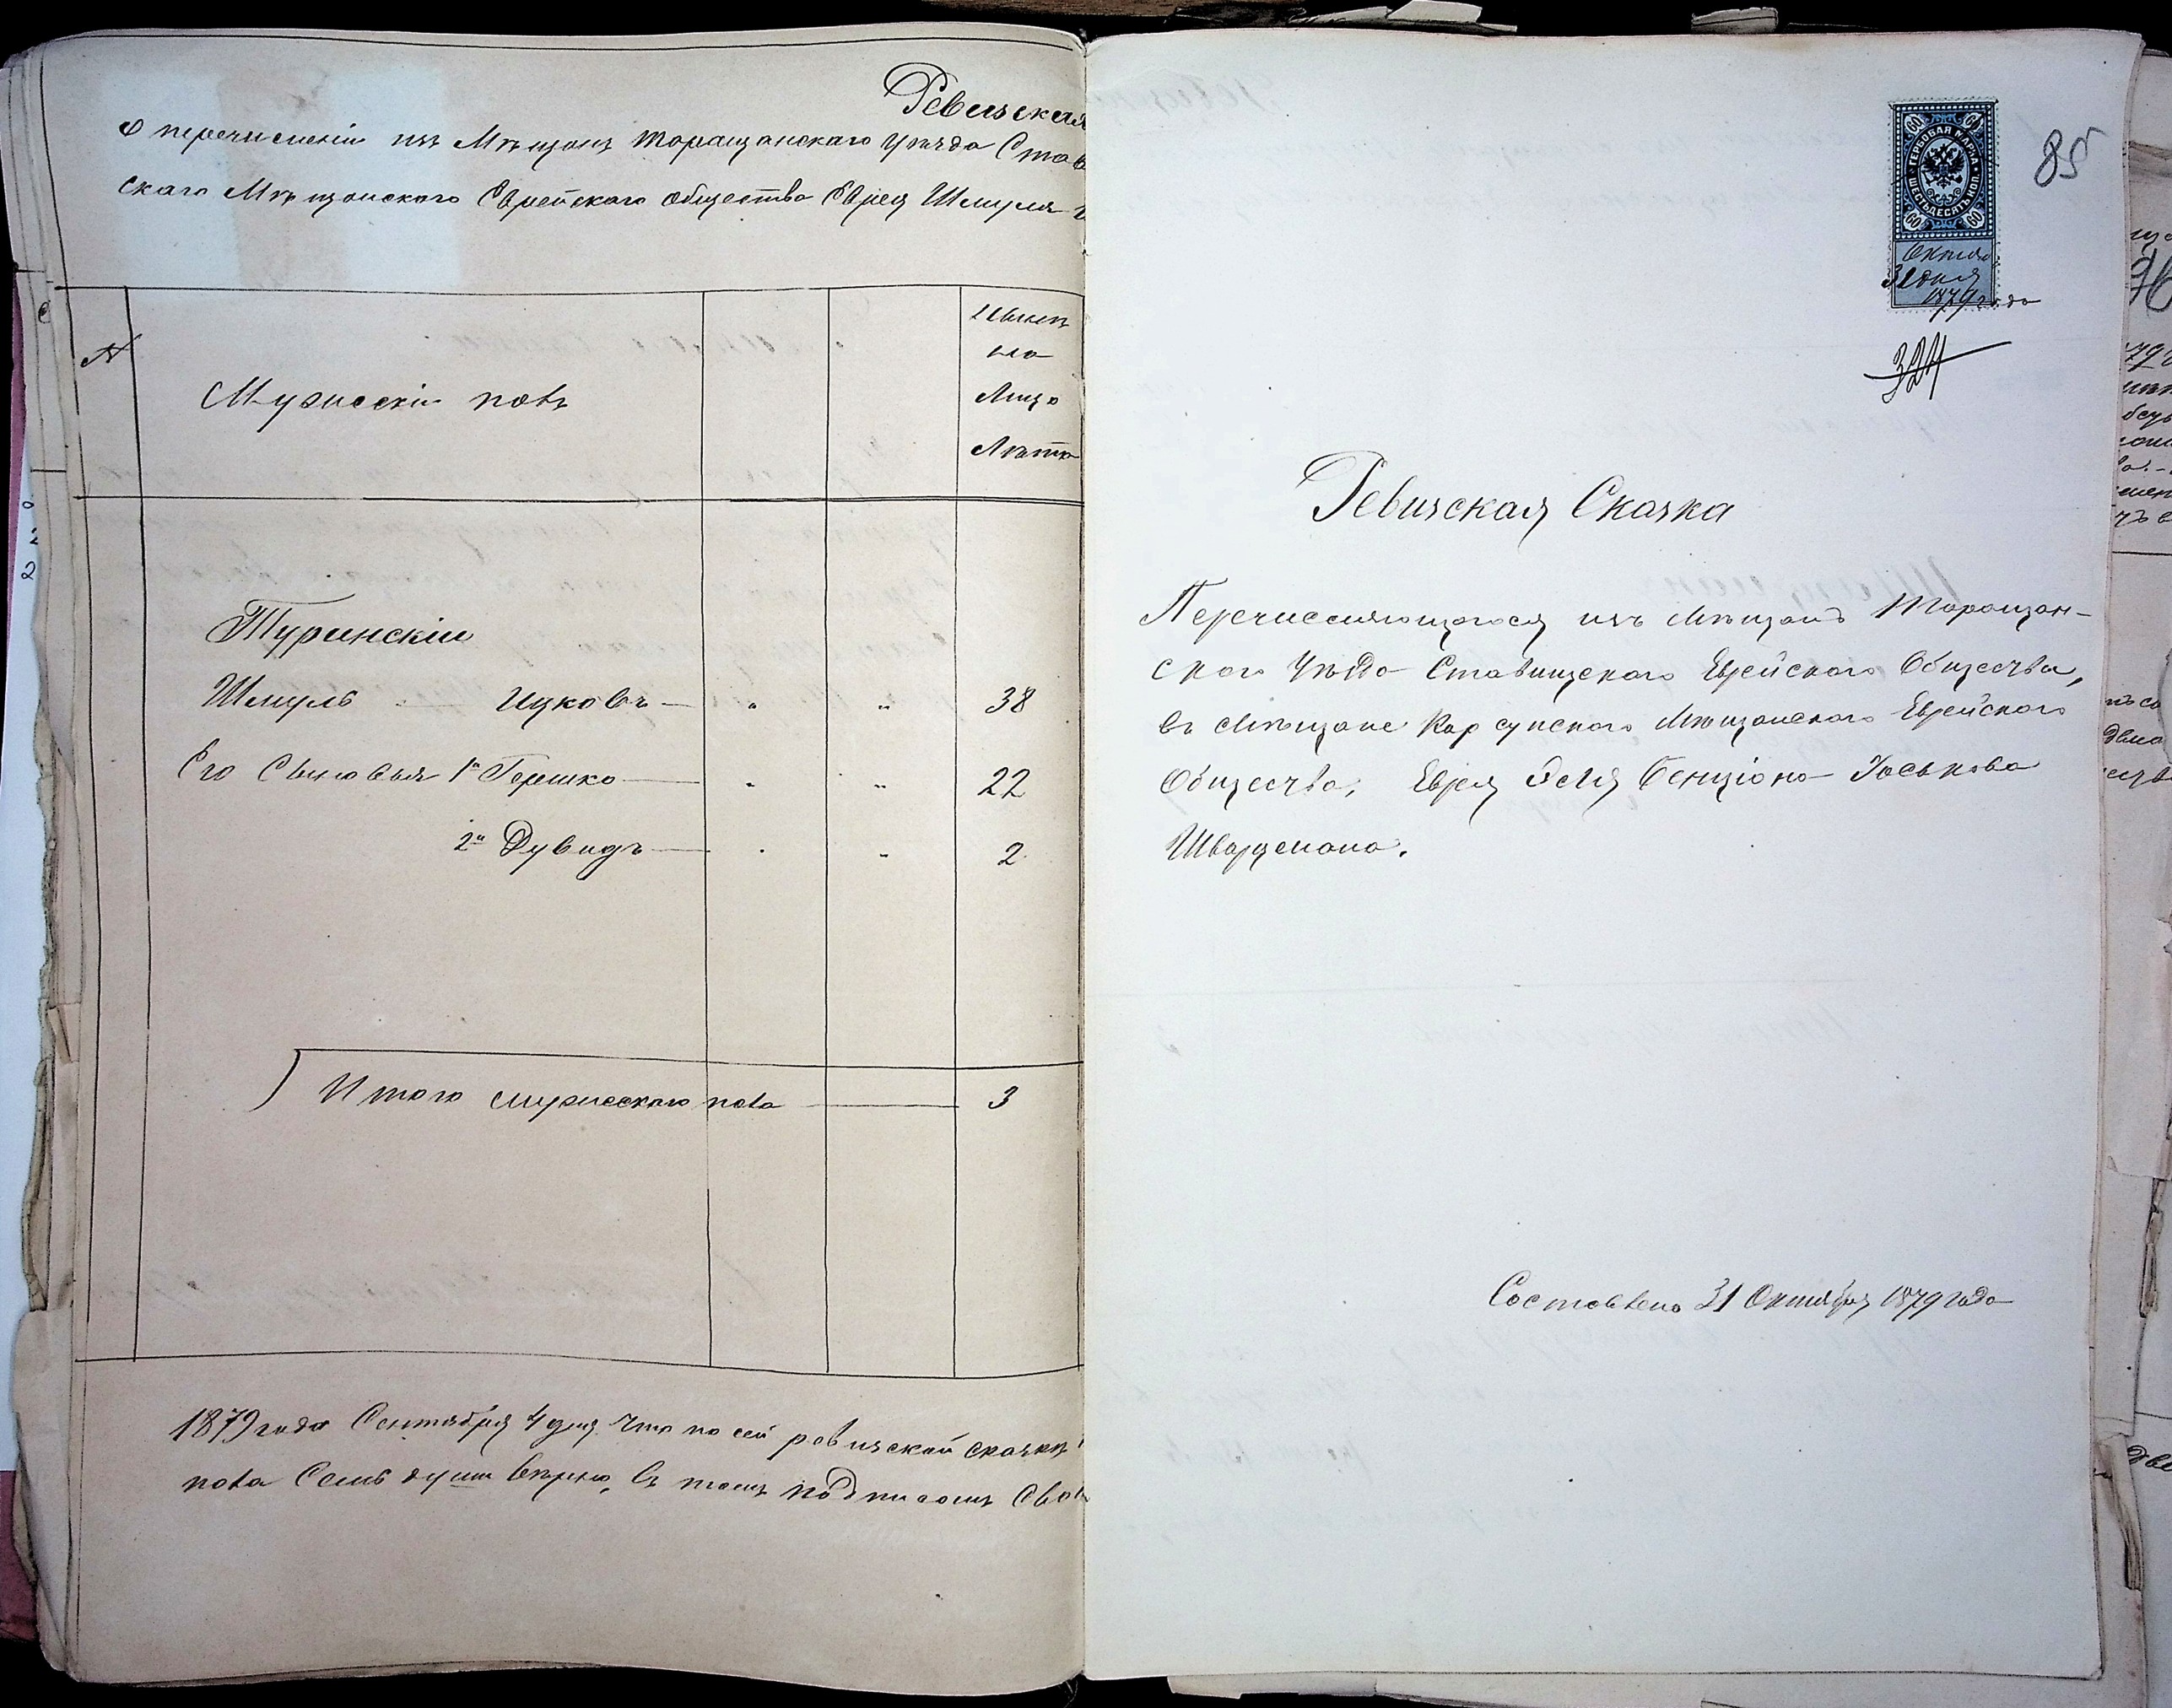 Ревизская
о перечисленіи изъ Мѣщанъ Таращанскаго Уѣзда Став
скаго Мѣщанскаго Еврейскаго общества Еврея Шмуля
N
Мужескій полъ
на
Лицо
Лѣта
Туринскій
Шмуль Ицковъ — " " 38
Его Сыновья 1й Гершко — " " 22
2й Дувидъ — " " 2
Итого мужескаго пола — 3
1879 года Сентября 4 дня что по сей ревизской сказкѣ
пола Семь душъ вѣрно, въ томъ подписомъ
60 60
ГЕРБОВАЯ МАРКА
ШЕСТЬДЕСЯТЬ КОП.
60 60
Октяб
31 дня
1879 года
85
324
Ревизская Сказка
Перечисляющагося изъ мѣщанъ Таращан-
скаго Уѣзда Ставищскаго Еврейскаго Общества,
въ мѣщане Карсунскаго Мѣщанскаго Еврейскаго
Общества, Еврея Бенціона Іоськова
Шварцмана.
Составлена 31 Октября 1879 года